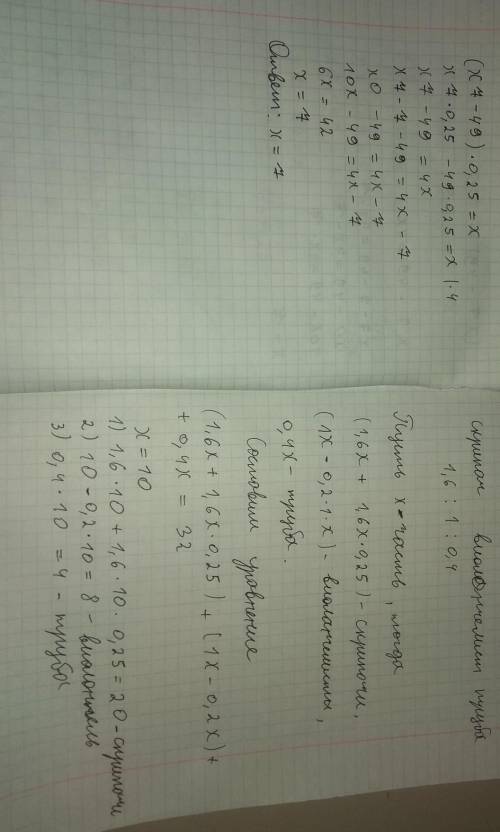 (x7 - 49) · 0,25 = x
x7 · 0,25 - 49 · 0,25 = x | · 4
x7 - 49 = 4x
x7 - 7 - 49 = 4x - 7
x0 - 49 = 4x - 7
10x - 49 = 4x - 7
6x = 42
x = 7
Ответ: x = 7
скрипач виолончелист труба
1,6 : 1 : 0,4
Пусть x - часть, тогда
(1,6x + 1,6x · 0,25) - скрипачи,
(1x - 0,2 · 1 · x) - виолончелисты,
0,4x - труба.
Составим уравнение
(1,6x + 1,6x · 0,25) + (1x - 0,2x) +
+ 0,4x = 32
x = 10
1) 1,6 · 10 + 1,6 · 10 · 0,25 = 20 - скрипачи
2) 10 - 0,2 · 10 = 8 - виолончель
3) 0,4 · 10 = 4 - труба